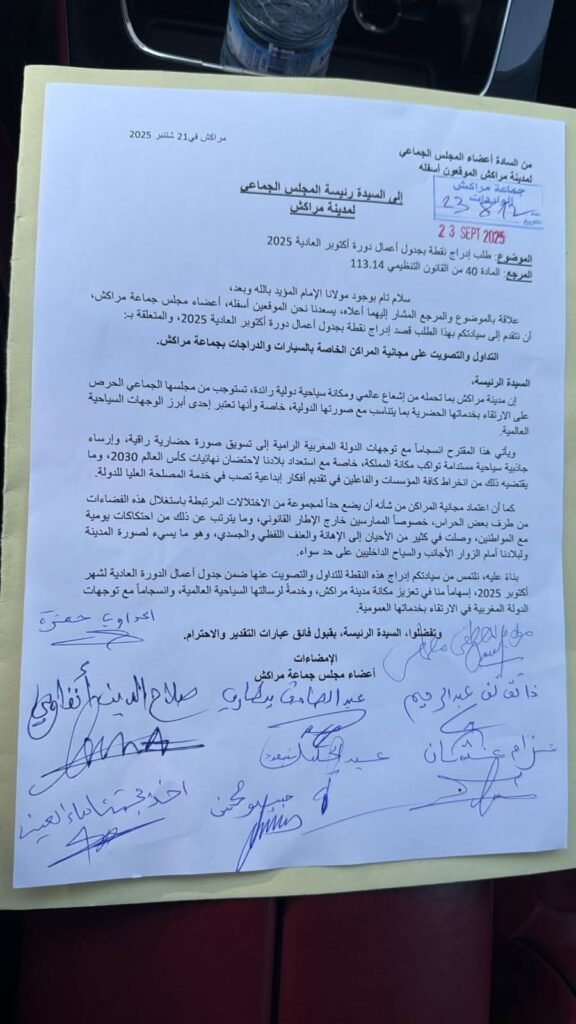 مراكش في21 شتنبر 2025
من السادة أعضاء المجلس الجماعي
لمدينة مراكش الموقعون أسفله
جماعة مراكش
الواردات
23812
23 SEPT 2025
إلى السيدة رئيسة المجلس الجماعي
لمدينة مراكش
الموضوع: طلب إدراج نقطة بجدول أعمال دورة أكتوبر العادية 2025
المرجع: المادة 40 من القانون التنظيمي 113.14
سلام تام بوجود مولانا الإمام المؤيد بالله وبعد،
علاقة بالموضوع والمرجع المشار إليهما أعلاه، يسعدنا نحن الموقعين أسفله، أعضاء مجلس جماعة مراكش،
أن نتقدم إلى سيادتكم بهذا الطلب قصد إدراج نقطة بجدول أعمال دورة أكتوبر العادية 2025، والمتعلقة بـ:
التداول والتصويت على مجانية المراكن الخاصة بالسيارات والدراجات بجماعة مراكش.
السيدة الرئيسة،
إن مدينة مراكش بما تحمله من إشعاع عالمي ومكانة سياحية دولية رائدة، تستوجب من مجلسها الجماعي الحرص
على الارتقاء بخدماتها الحضرية بما يتناسب مع صورتها الدولية، خاصة وأنها تعتبر إحدى أبرز الوجهات السياحية
العالمية.
ويأتي هذا المقترح انسجاماً مع توجهات الدولة المغربية الرامية إلى تسويق صورة حضارية راقية، وإرساء
جاذبية سياحية مستدامة تواكب مكانة المملكة، خاصة مع استعداد بلادنا لاحتضان نهائيات كأس العالم 2030، وما
يقتضيه ذلك من انخراط كافة المؤسسات والفاعلين في تقديم أفكار إبداعية تصب في خدمة المصلحة العليا للدولة.
كما أن اعتماد مجانية المراكن من شأنه أن يضع حداً لمجموعة من الاختلالات المرتبطة باستغلال هذه الفضاءات
من طرف بعض الحراس، خصوصاً الممارسين خارج الإطار القانوني، وما يترتب عن ذلك من احتكاكات يومية
مع المواطنين، وصلت في كثير من الأحيان إلى الإهانة والعنف اللفظي والجسدي، وهو ما يسيء لصورة المدينة
ولبلادنا أمام الزوار الأجانب والسياح الداخليين على حد سواء.
بناءً عليه، نلتمس من سيادتكم إدراج هذه النقطة للتداول والتصويت عنها ضمن جدول أعمال الدورة العادية لشهر
أكتوبر 2025، إسهاماً منا في تعزيز مكانة مدينة مراكش، وخدمةً لرسالتها السياحية العالمية، وانسجاماً مع توجهات
الدولة المغربية في الارتقاء بخدماتها العمومية.
وتفضلوا، السيدة الرئيسة، بقبول فائق عبارات التقدير والاحترام.
الإمضاءات
أعضاء مجلس جماعة مراكش
عبد الصادق بيطاري
صلاح الدين
عبد الرحيم